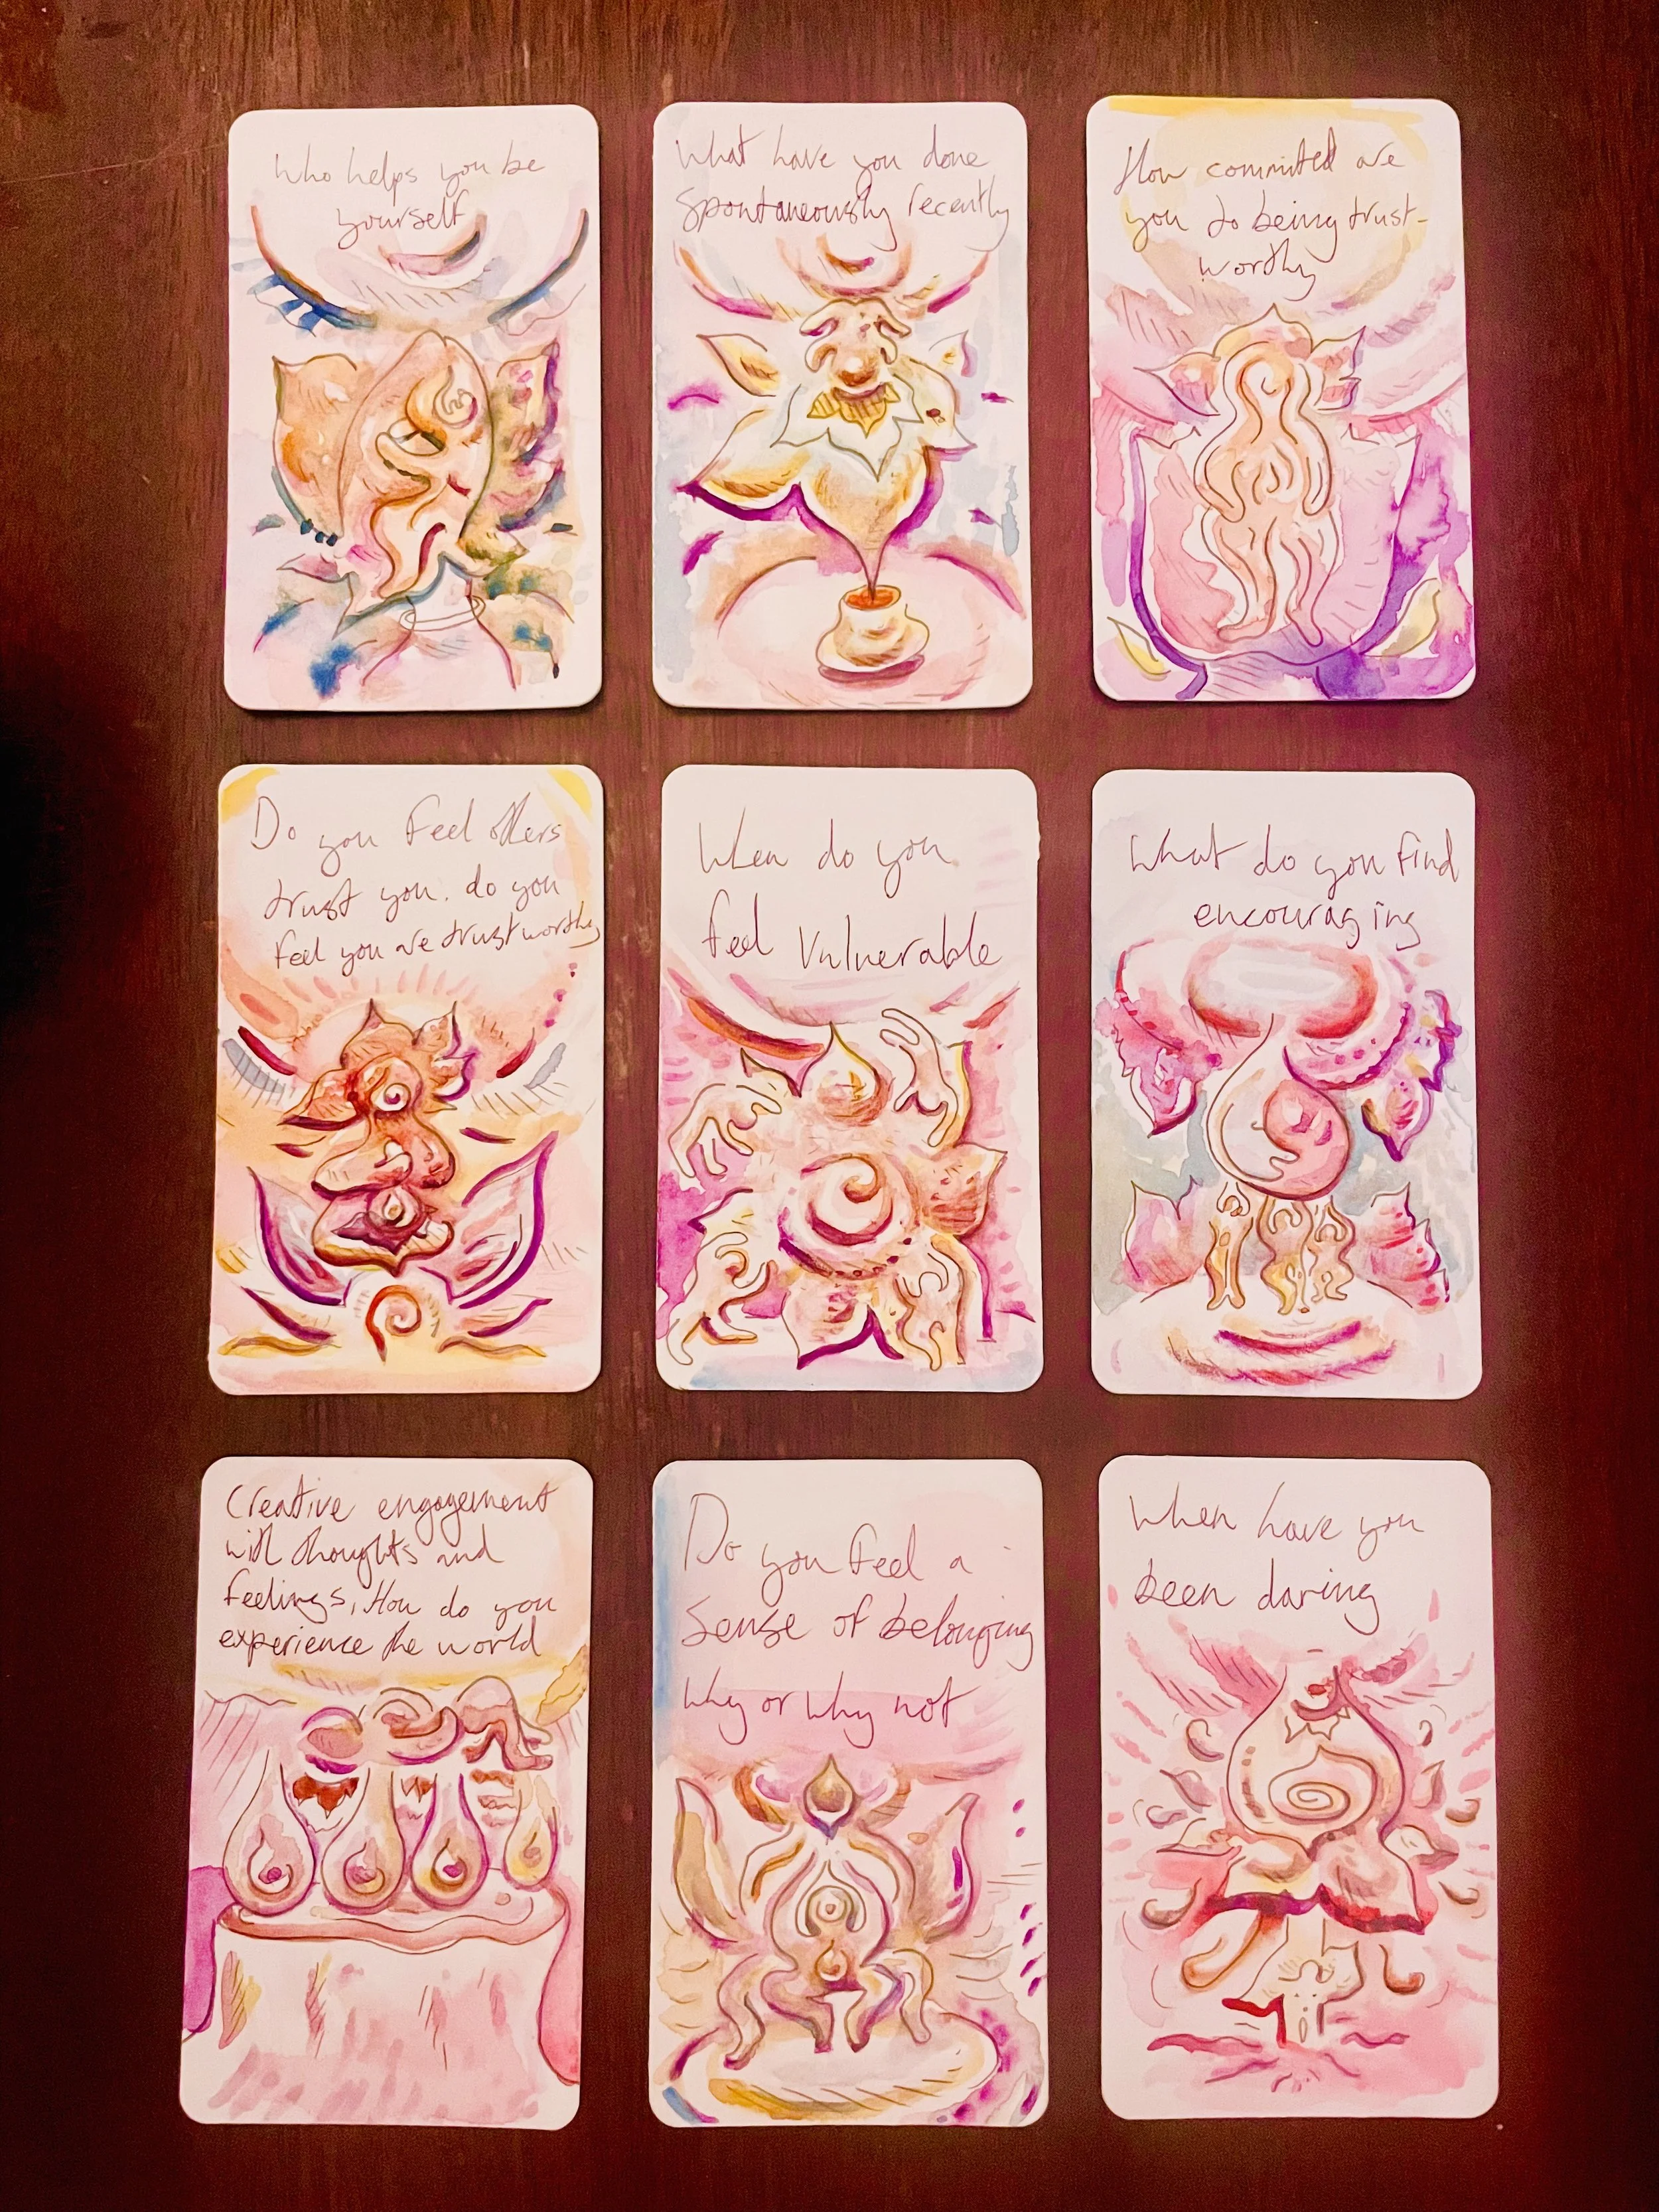 Who helps you be
yourself
What have you done
Spontaneously recently
How committed are
you to being trust-
worthy
Do you feel others
trust you. do you
feel you are trustworthy
When do you
feel Vulnerable
What do you find
encouraging
Creative engagement
with thoughts and
feelings, How do you
experience the world
Do you feel a
Sense of belonging
Why or why not
When have you
been daring